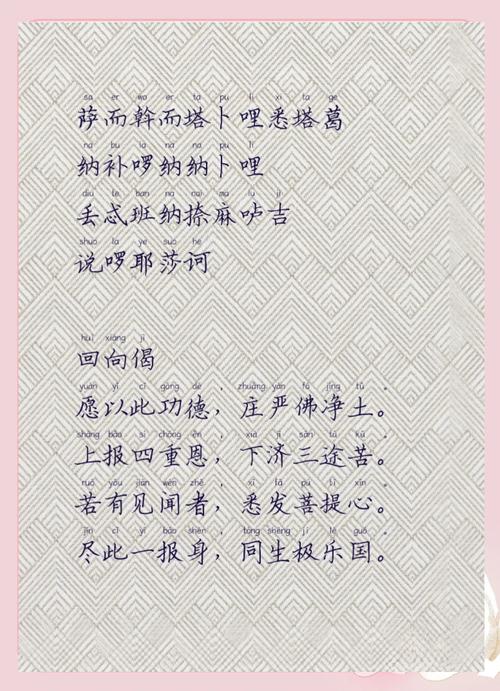 sa er wo er ta pu li xi ta ge
萨而斡而塔卜哩悉塔葛
na bu la na na pu li
纳补啰纳纳卜哩
diu te ban na nai ma lu ji
丢忒班纳捺麻嚧吉
shuo la ye suo he
说啰耶莎诃
huí xiàng jì
回向偈
yuàn yǐ cǐ gōng dé , zhuāng yán fó jìng tǔ 。
愿以此功德，庄严佛净土。
shàng bào sì chóng ēn , xià jì sān tú kǔ 。
上报四重恩，下济三途苦。
ruò yǒu jiàn wén zhě , xī fā pú tí xīn 。
若有见闻者，悉发菩提心。
jìn cǐ yī bào shēn , tóng shēng jí lè guó 。
尽此一报身，同生极乐国。